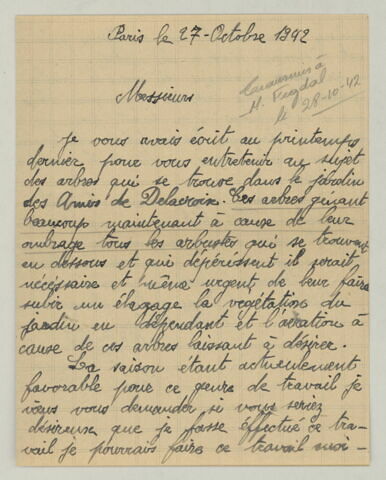 Paris le 27-Octobre 1942
Transmis à
M.
le 28-10-42
Messieurs
Je vous avais écrit au printemps
dernier pour vous entretenir au sujet
des arbres qui se trouve dans le jardin
des Amis de Delacroix. Ces arbres gênant
beaucoup maintenant à cause de leur
ombrage tous les arbustes qui se trouvent
en dessous et qui dépérissent il serait
nécessaire et même urgent de leur faire
subir un élagage la végétation du
jardin en dépendant et l'aération à
cause de ces arbres laissant à désirer.
La saison étant actuellement
favorable pour ce genre de travail je
viens vous demander si vous seriez
désireux que je fasse effectué ce tra-
vail je pourrais faire ce travail moi-